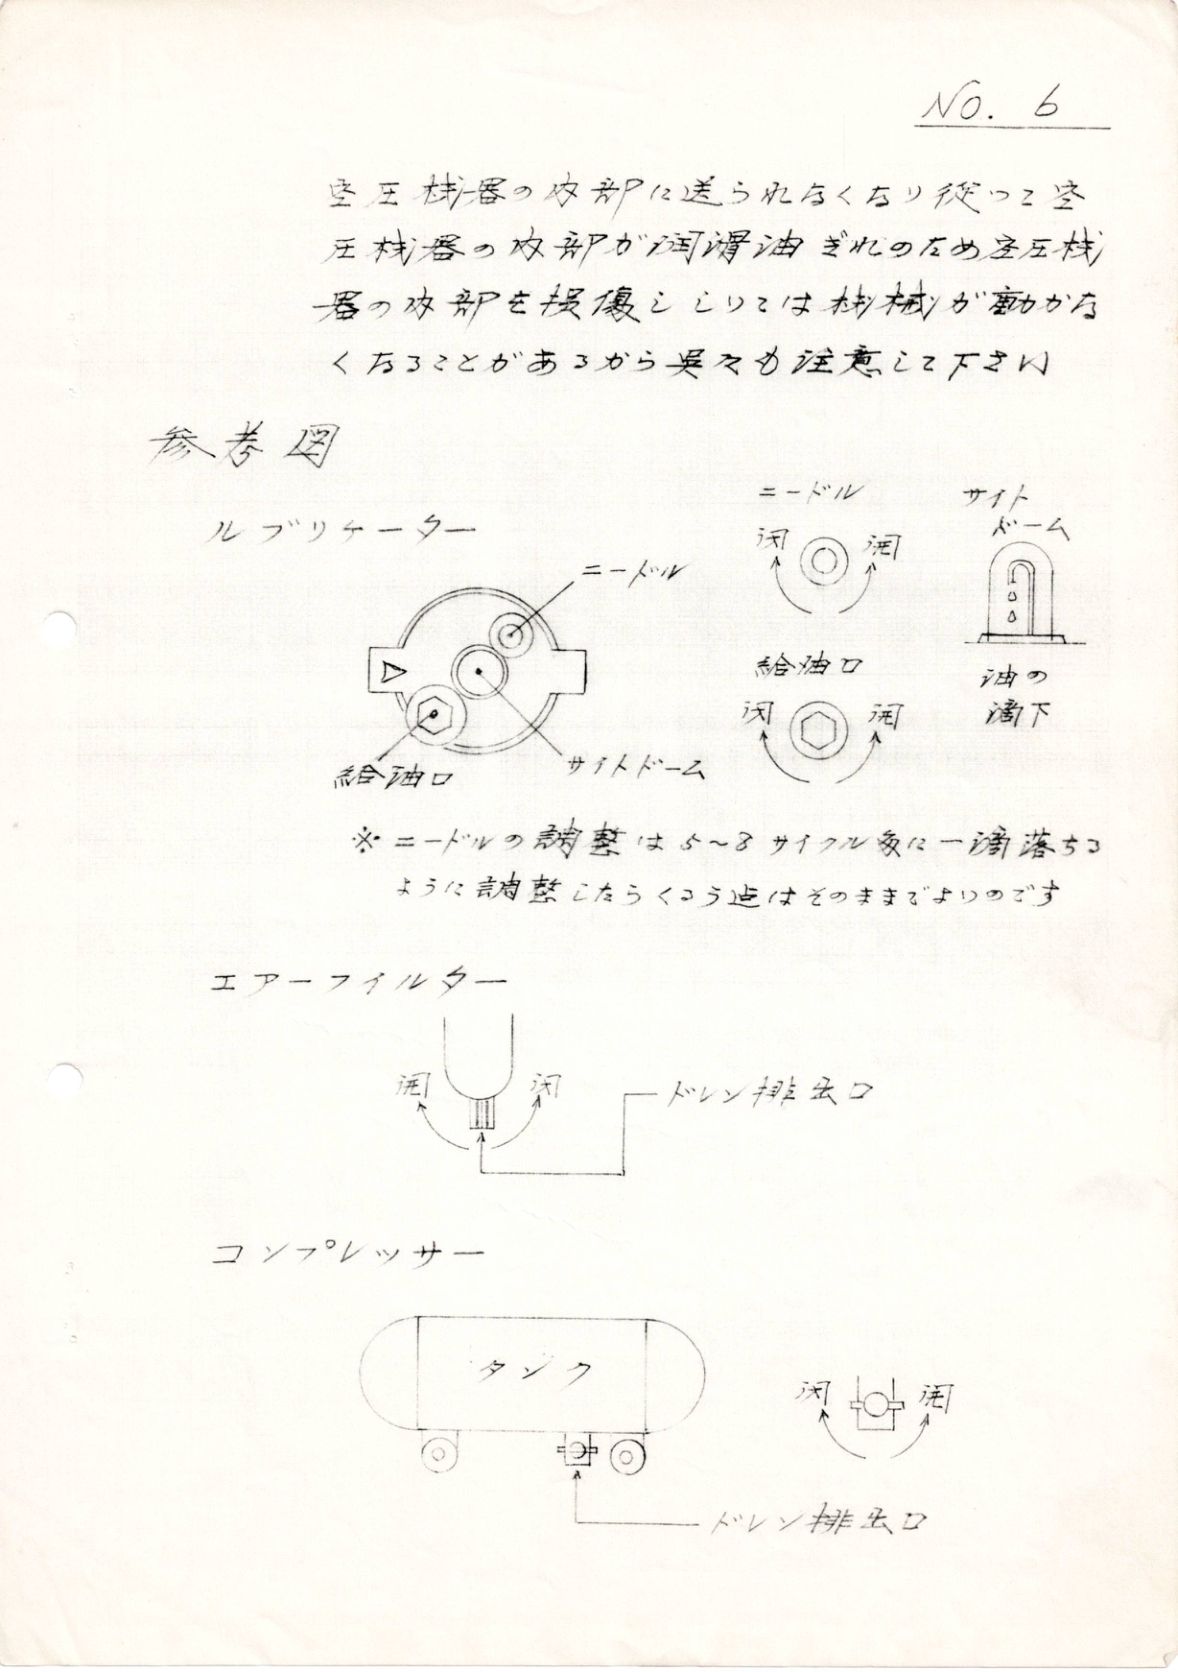 NO. 6
空圧機器の内部に送られなくなり従って空
圧機器の内部が潤滑油ぎれのため空圧機
器の内部を損傷し しいては機械が動かな
くなることがあるから呉々も注意して下さい
参考図
ルブリケーター
ニードル
給油口
サイトドーム
ニードル
閉 開
給油口
閉 開
サイト
ドーム
油の
滴下
※ニードルの調整は5~8サイクル毎に一滴落ちる
ように調整したらくるう迄はそのままでよいのです
エアーフィルター
開 閉
ドレン排出口
コンプレッサー
タンク
閉 開
ドレン排出口